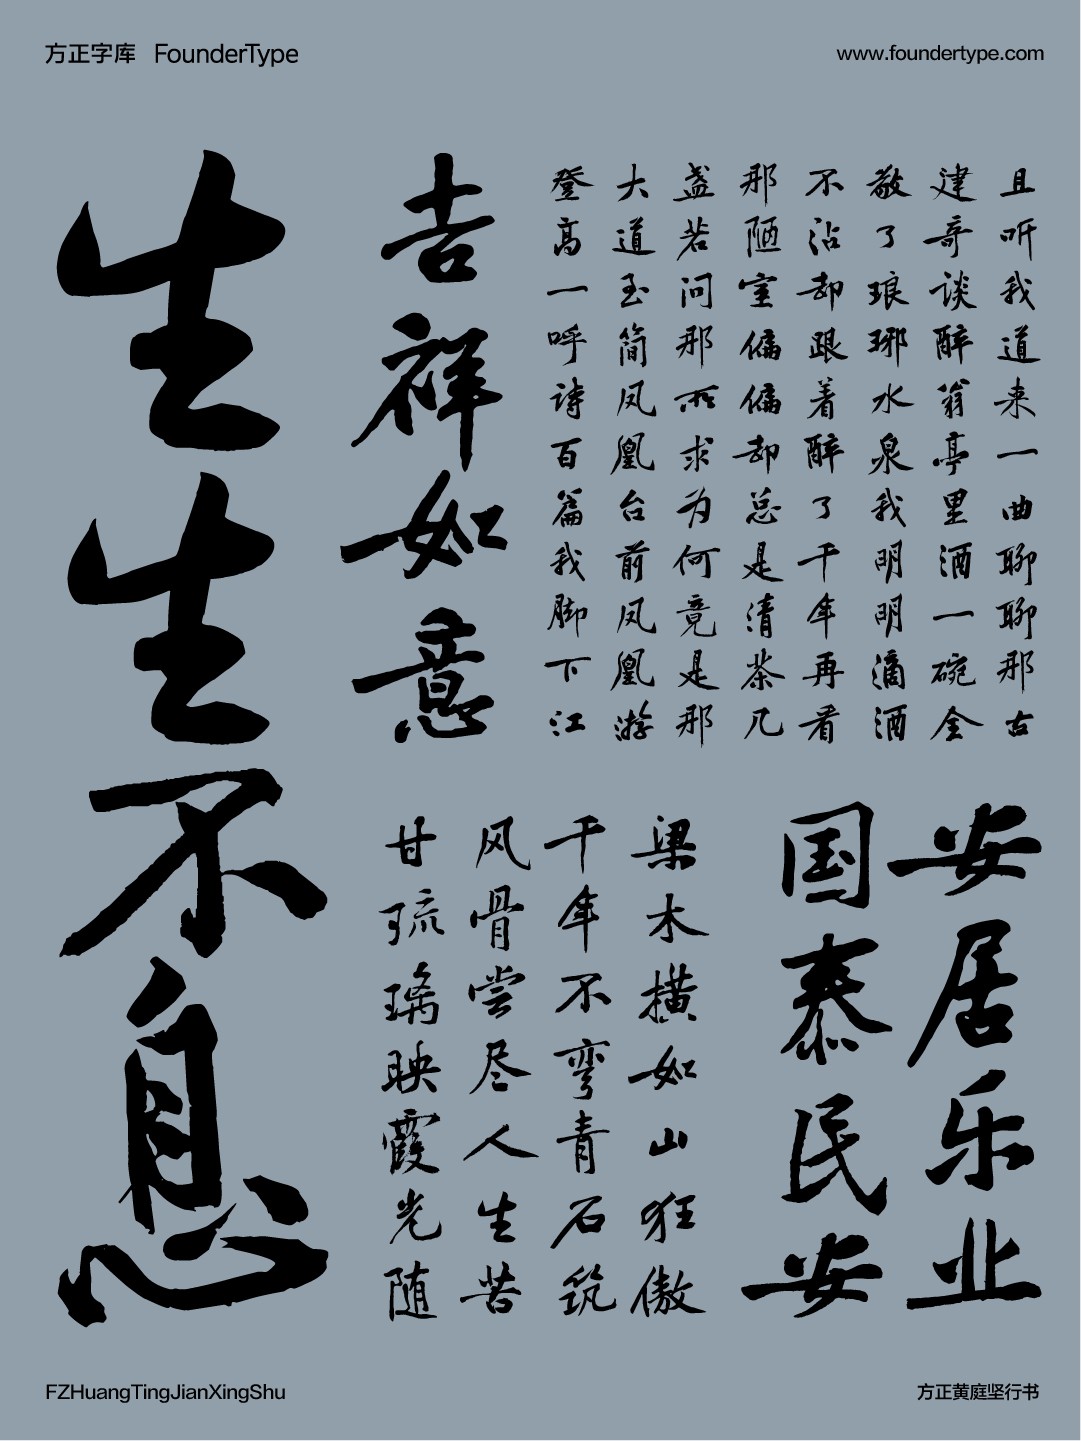 方正字库 FounderType
www.foundertype.com
且听我道来一曲聊聊那古
建哥谈醉翁亭里酒一碗全
敬了琅琊水泉我明明滴酒
不沾却跟着醉了千年再看
那陋室偏偏却总是清茶几
盏若问那所求为何竟是那
大道至简凤凰台前凤凰游
登高一呼诗百篇我脚下江
吉祥如意
生生不息
安居乐业
国泰民安
梁木横如山狂傲
千年不弯青石筑
风骨尝尽人生苦
甘琉璃映霞光随
FZHuangTingJianXingShu
方正黄庭坚行书